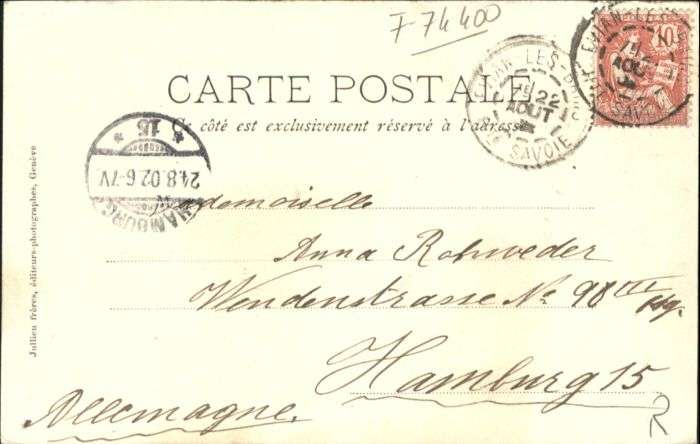 F 74400
10
EVIAN-LES-B
AOUT
SAVOIE
EVIAN-LES-BAINS
22
AOUT
Hte SAVOIE
CARTE POSTALE
Ce côté est exclusivement réservé à l'adresse
HAMBURG
24.8.02.6-7V
* 15 *
Jullien frères, éditeurs-photographes, Genève
Mademoiselle
Anna Rohweder
Wendenstrasse No. 98 III
Hamburg 15
Allemagne.
R